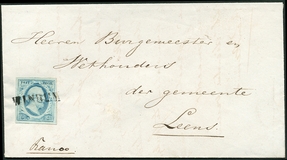 Heeren Burgemeester en
Wethouders
der gemeente
Leens
Franco